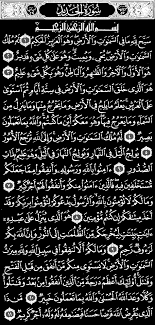 سُورَةُ الحَدِيدِ
بِسْمِ اللَّهِ الرَّحْمَٰنِ الرَّحِيمِ
سَبَّحَ لِلَّهِ مَا فِي السَّمَٰوَٰتِ وَالْأَرْضِ وَهُوَ الْعَزِيزُ الْحَكِيمُ ١ لَهُ مُلْكُ
السَّمَٰوَٰتِ وَالْأَرْضِ يُحْيِي وَيُمِيتُ وَهُوَ عَلَىٰ كُلِّ شَيْءٍ قَدِيرٌ ٢
هُوَ الْأَوَّلُ وَالْآخِرُ وَالظَّاهِرُ وَالْبَاطِنُ وَهُوَ بِكُلِّ شَيْءٍ عَلِيمٌ ٣
هُوَ الَّذِي خَلَقَ السَّمَٰوَٰتِ وَالْأَرْضَ فِي سِتَّةِ أَيَّامٍ ثُمَّ اسْتَوَىٰ
عَلَى الْعَرْشِ يَعْلَمُ مَا يَلِجُ فِي الْأَرْضِ وَمَا يَخْرُجُ مِنْهَا وَمَا يَنزِلُ مِنَ
السَّمَاءِ وَمَا يَعْرُجُ فِيهَا وَهُوَ مَعَكُمْ أَيْنَ مَا كُنتُمْ وَاللَّهُ بِمَا تَعْمَلُونَ
بَصِيرٌ ٤ لَّهُ مُلْكُ السَّمَٰوَٰتِ وَالْأَرْضِ وَإِلَى اللَّهِ تُرْجَعُ الْأُمُورُ
٥ يُولِجُ اللَّيْلَ فِي النَّهَارِ وَيُولِجُ النَّهَارَ فِي اللَّيْلِ وَهُوَ عَلِيمٌ بِذَاتِ
الصُّدُورِ ٦ ءَامِنُوا بِاللَّهِ وَرَسُولِهِ وَأَنفِقُوا مِمَّا جَعَلَكُم
مُّسْتَخْلَفِينَ فِيهِ فَالَّذِينَ ءَامَنُوا مِنكُمْ وَأَنفَقُوا لَهُمْ أَجْرٌ كَبِيرٌ ٧
وَمَا لَكُمْ لَا تُؤْمِنُونَ بِاللَّهِ وَالرَّسُولُ يَدْعُوكُمْ لِتُؤْمِنُوا بِرَبِّكُمْ وَقَدْ
أَخَذَ مِيثَٰقَكُمْ إِن كُنتُم مُّؤْمِنِينَ ٨ هُوَ الَّذِي يُنَزِّلُ عَلَىٰ عَبْدِهِ
ءَايَٰتٍ بَيِّنَٰتٍ لِّيُخْرِجَكُم مِّنَ الظُّلُمَٰتِ إِلَى النُّورِ وَإِنَّ اللَّهَ بِكُمْ
لَرَءُوفٌ رَّحِيمٌ ٩ وَمَا لَكُمْ أَلَّا تُنفِقُوا فِي سَبِيلِ اللَّهِ وَلِلَّهِ مِيرَٰثُ
السَّمَٰوَٰتِ وَالْأَرْضِ لَا يَسْتَوِي مِنكُم مَّنْ أَنفَقَ مِن قَبْلِ الْفَتْحِ
وَقَٰتَلَ أُولَٰئِكَ أَعْظَمُ دَرَجَةً مِّنَ الَّذِينَ أَنفَقُوا مِن بَعْدُ وَقَٰتَلُوا
وَكُلًّا وَعَدَ اللَّهُ الْحُسْنَىٰ وَاللَّهُ بِمَا تَعْمَلُونَ خَبِيرٌ ١٠
مَّن ذَا الَّذِي يُقْرِضُ اللَّهَ قَرْضًا حَسَنًا فَيُضَٰعِفَهُ لَهُ وَلَهُ أَجْرٌ كَرِيمٌ ١١